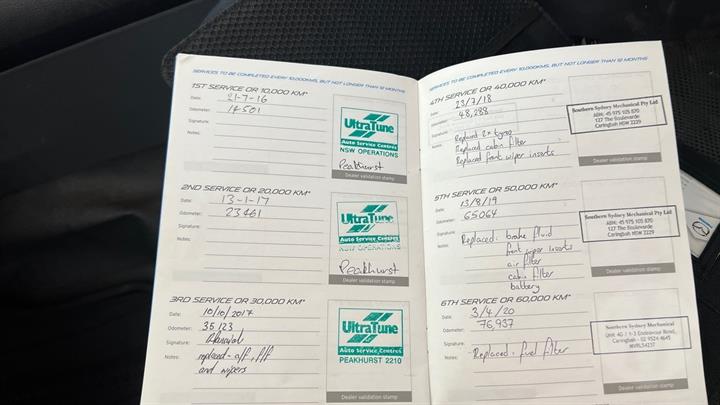 SERVICES TO BE COMPLETED EVERY 10,000KMS, BUT NOT LONGER THAN 12 MONTHS
1ST SERVICE OR 10,000 KM*
Date: 21-7-16
Odometer: 14501
Signature:
Notes:
UltraTune
Auto Service Centres
NSW OPERATIONS
Peakhurst
Dealer validation stamp
2ND SERVICE OR 20,000 KM*
Date: 13-1-17
Odometer: 23461
Signature:
Notes:
UltraTune
Auto Service Centres
NSW OPERATIONS
Peakhurst
Dealer validation stamp
3RD SERVICE OR 30,000 KM*
Date: 10/10/2017
Odometer: 35123
Signature:
Notes: replaced - o/f, f/f
and wipers
UltraTune
Auto Service Centres
PEAKHURST 2210
Dealer validation stamp
SERVICES TO BE COMPLETED EVERY 10,000KMS, BUT NOT LONGER THAN 12 MONTHS
4TH SERVICE OR 40,000 KM*
Date: 23/7/18
Odometer: 48,288
Signature:
Notes: Replaced 2x tyres
Replaced cabin filter
Replaced front wiper inserts
Southern Sydney Mechanical Pty Ltd
ABN: 45 975 105 870
127 The Boulevarde
Caringbah NSW 2229
Dealer validation stamp
5TH SERVICE OR 50,000 KM*
Date: 13/8/19
Odometer: 65064
Signature:
Notes: Replaced: brake fluid
front wiper inserts
air filter
cabin filter
battery
Southern Sydney Mechanical Pty Ltd
ABN: 45 975 105 870
127 The Boulevarde
Caringbah NSW 2229
Dealer validation stamp
6TH SERVICE OR 60,000 KM*
Date: 3/4/20
Odometer: 76,937
Signature:
Notes: Replaced: fuel filter
Southern Sydney Mechanical
Unit 4G / 1-3 Endeavour Road,
Caringbah - 02 9524 4645
MVRL54237
Dealer validation stamp